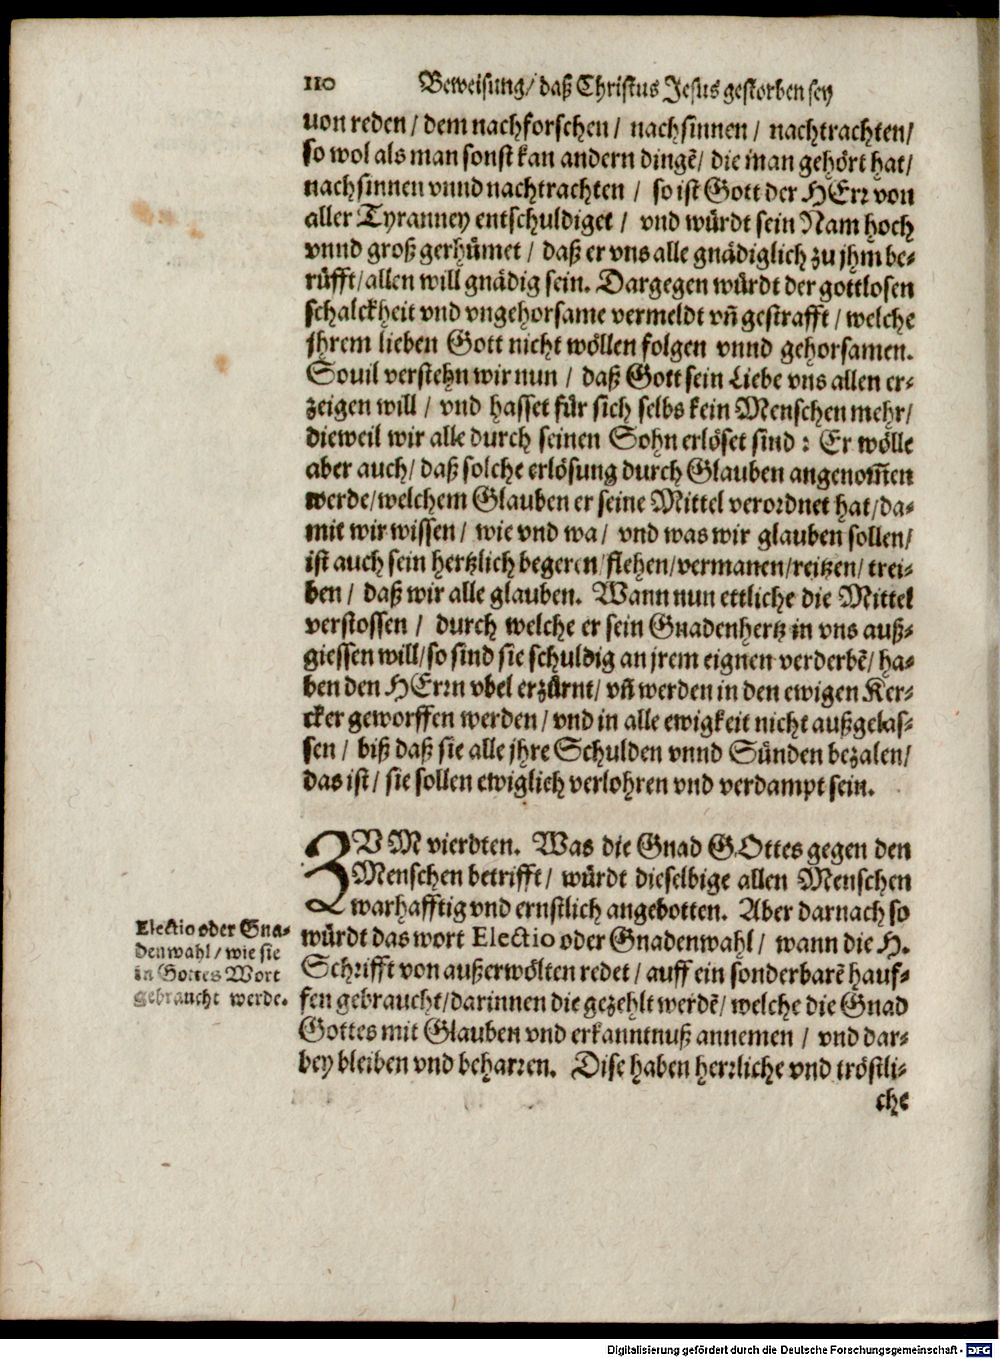 110 Beweisung/ daß Christus Jesus gestorben sey
von reden / dem nachforschen / nachsinnen / nachtrachten/
so wol als man sonst kan andern dingẽ/ die man gehört hat/
nachsinnen vnnd nachtrachten / so ist Gott der HErr von
aller Tyranney entschuldiget / vnd würdt sein Nam hoch
vnnd groß gerhümet / daß er vns alle gnädiglich zu jhm be-
rüfft/ allen will gnädig sein. Dargegen würdt der gottlosen
schalckheit vnd vngehorsame vermeldt vñ gestrafft / welche
jhrem lieben Gott nicht wöllen folgen vnnd gehorsamen.
Souil verstehn wir nun / daß Gott sein Liebe vns allen er-
zeigen will / vnd hasset für sich selbs kein Menschen mehr/
dieweil wir alle durch seinen Sohn erlöset sind : Er wölle
aber auch/ daß solche erlösung durch Glauben angenom̃en
werde/welchem Glauben er seine Mittel verordnet hat/da-
mit wir wissen / wie vnd wa/ vnd was wir glauben sollen/
ist auch sein hertzlich begeren/flehen/vermanen/reitzen/ trei-
ben / daß wir alle glauben. Wann nun ettliche die Mittel
verstossen / durch welche er sein Gnadenhertz in vns auß-
giessen will/so sind sie schuldig an jrem eignen verderbẽ/ ha-
ben den HErrn vbel erzürnt/ vñ werden in den ewigen Ker-
cker geworffen werden / vnd in alle ewigkeit nicht außgelas-
sen / biß daß sie alle jhre Schulden vnnd Sünden bezalen/
das ist / sie sollen ewiglich verlohren vnd verdampt sein.
ZVM vierdten. Was die Gnad GOttes gegen den
Menschen betrifft/ würdt dieselbige allen Menschen
warhafftig vnd ernstlich angebotten. Aber darnach so
würdt das wort Electio oder Gnadenwahl/ wann die H.
Schrifft von außerwölten redet / auff ein sonderbarẽ hauf-
fen gebraucht/darinnen die gezehlt werdẽ/ welche die Gnad
Gottes mit Glauben vnd erkanntnuß annemen / vnd dar-
bey bleiben vnd beharren. Dise haben herrliche vnd tröstli-
che
Electio oder Gna-
denwahl / wie sie
in Gottes Wort
gebraucht werde.
Digitalisierung gefördert durch die Deutsche Forschungsgemeinschaft - DFG